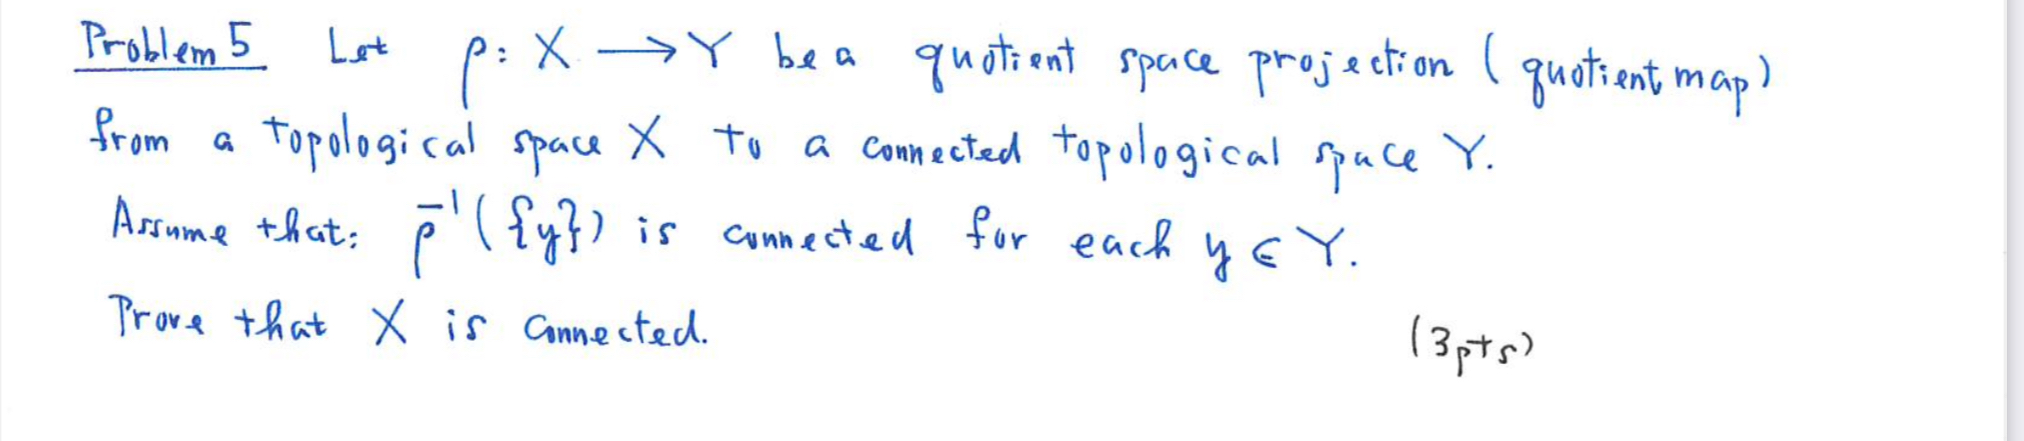 Problem 5 Let p: X → Y be a quotient space projection (quotient map)
from a topological space X to a connected topological space Y.
Assume that: p⁻¹({y}) is connected for each y ∈ Y.
Prove that X is connected.
(3pts)